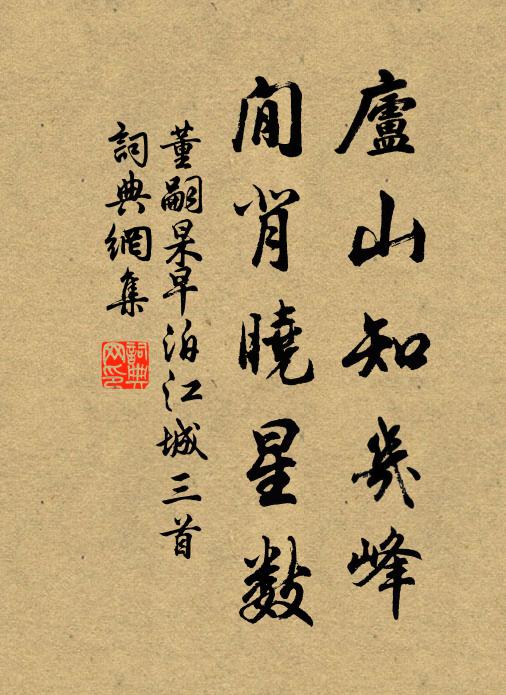 廬山知幾峰
閒背曉星數
董嗣杲早泊江城三首
詞典網集
詞典網印